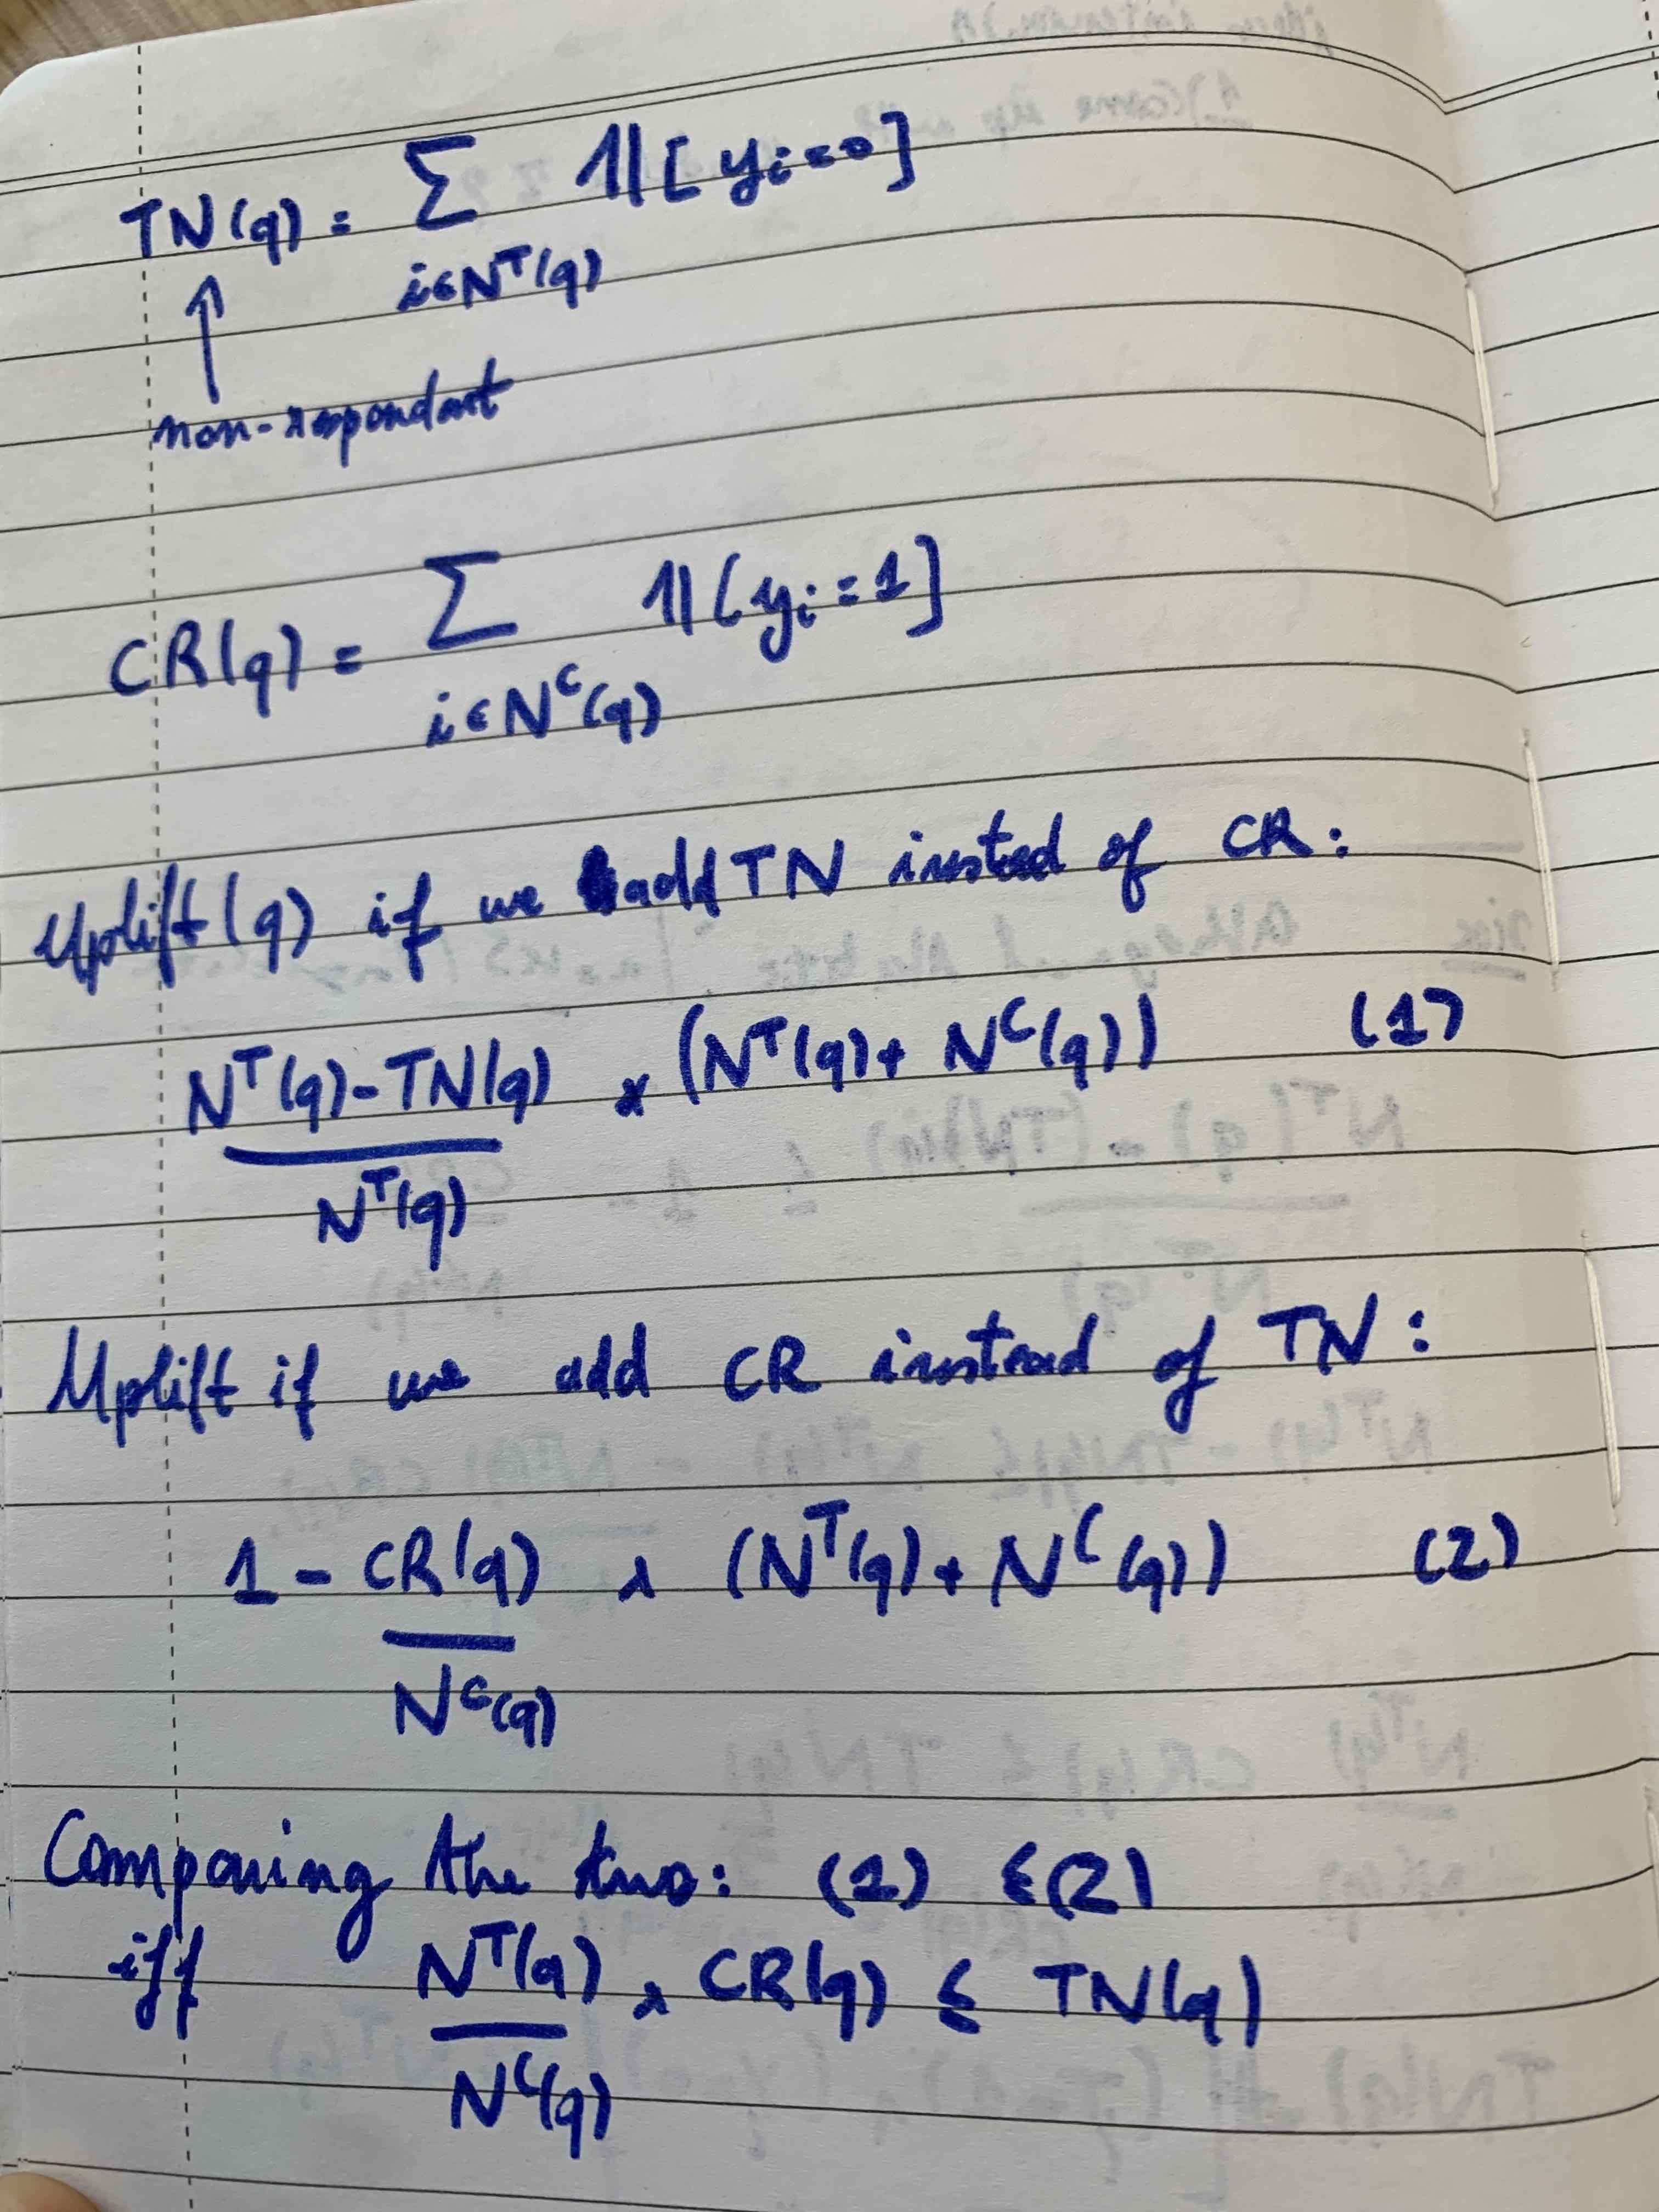 TN(q) = Σ 𝟙[y_i = 0]
i∈N^T(q)
non-respondant
CR(q) = Σ 𝟙[y_i = 1]
i∈N^C(q)
Uplift(q) if we add TN instead of CR:
N^T(q) - TN(q) × (N^T(q) + N^C(q)) (1)
N^T(q)
Uplift if we add CR instead of TN:
1 - CR(q) × (N^T(q) + N^C(q)) (2)
N^C(q)
Comparing the two: (1) ≤ (2)
iff N^T(q) × CR(q) ≤ TN(q)
N^C(q)